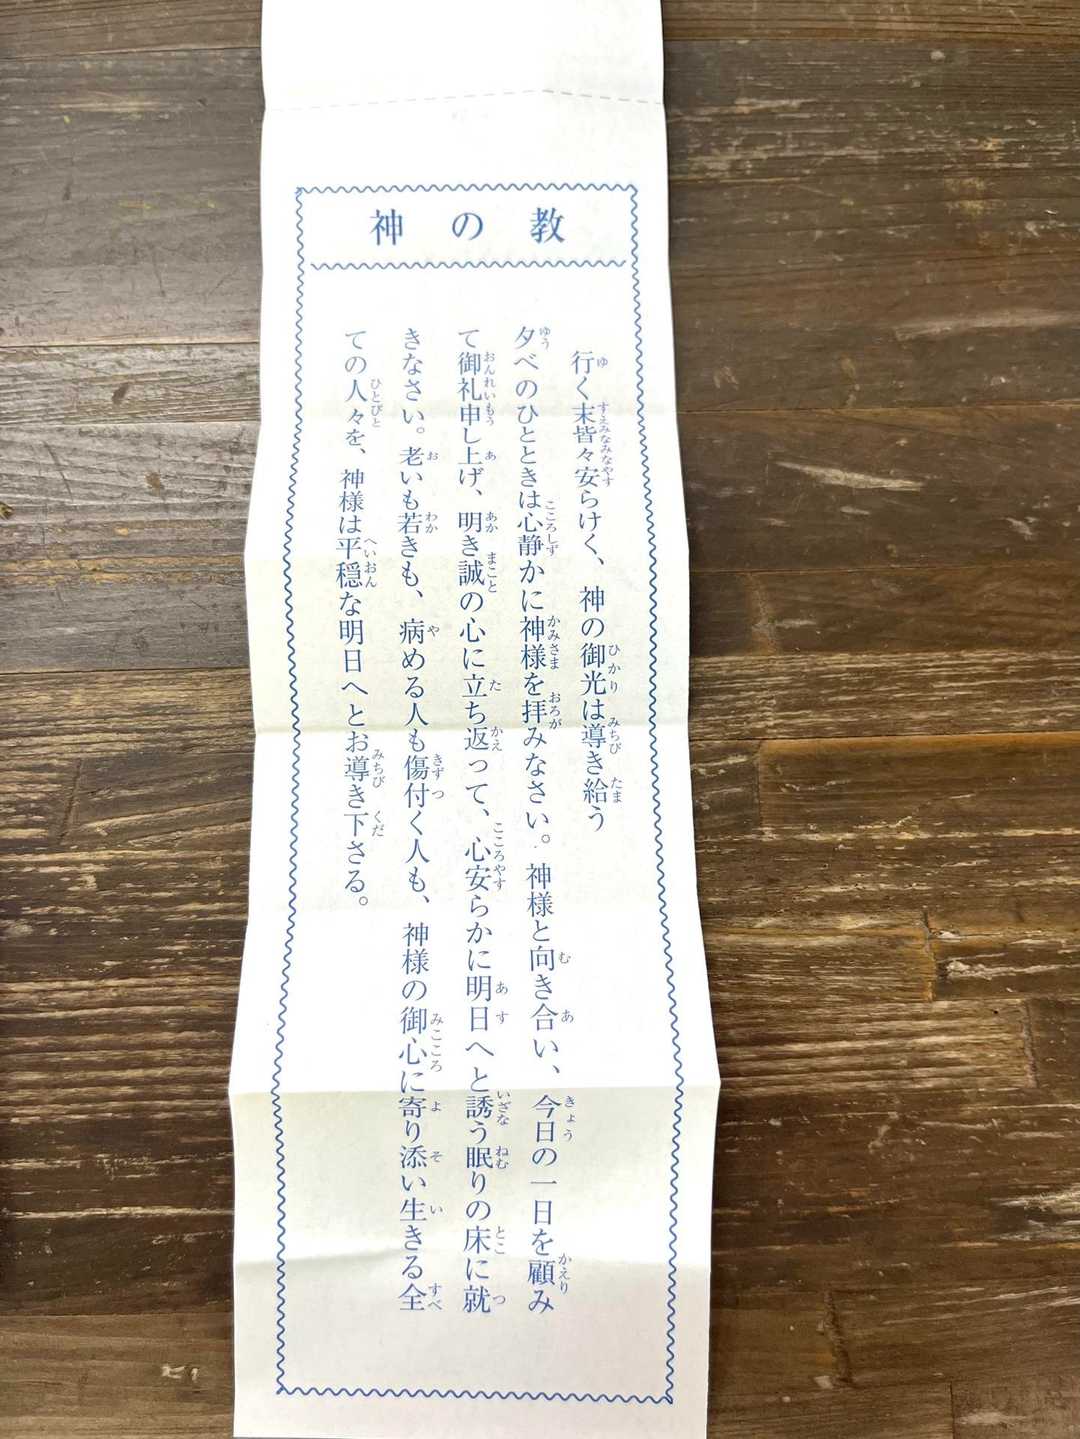 神の教
行く末皆々安らけく、神の御光は導き給う
夕べのひとときは心静かに神様を拝みなさい。神様と向き合い、今日の一日を顧み
て御礼申し上げ、明き誠の心に立ち返って、心安らかに明日へと誘う眠りの床に就
きなさい。老いも若きも、病める人も傷付く人も、神様の御心に寄り添い生きる全
ての人々を、神様は平穏な明日へとお導き下さる。